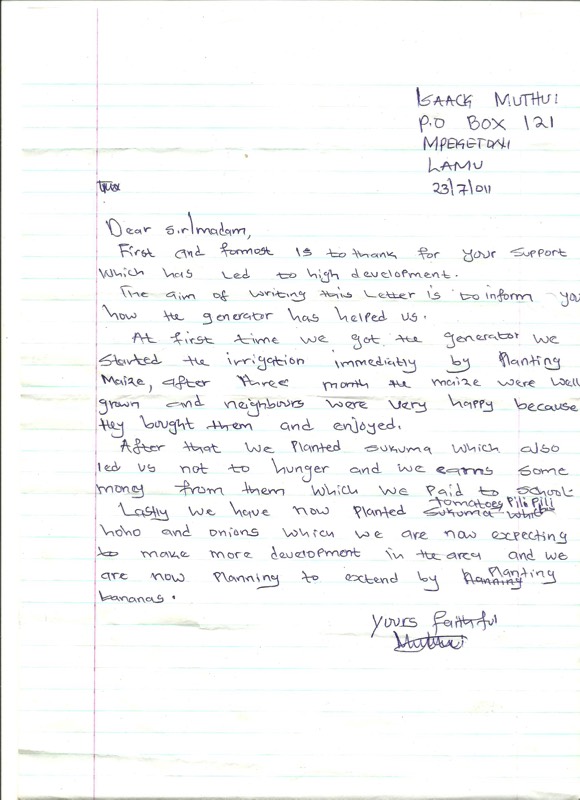 ISAACK MUTHUI
P.O BOX 121
MPEKETONI
LAMU
23/7/011
Dear sir/madam,
First and formost is to thank for your support
which has Led to high development.
The aim of writing this Letter is to inform you
how the generator has helped us.
At first time we got the generator we
started the irrigation immediatly by Planting
Maize, after three month the maize were well
grown and neighbours were very happy because
they bought them and enjoyed.
After that we Planted sukuma which also
led us not to hunger and we earns some
money from them which we Paid to school
Lastly we have now Planted tomatoes Pili Pili
hoho and onions which we are now expecting
to make more development in the area and we
are now Planning to extend by Planting
bananas.
Yours faithful
Muthui